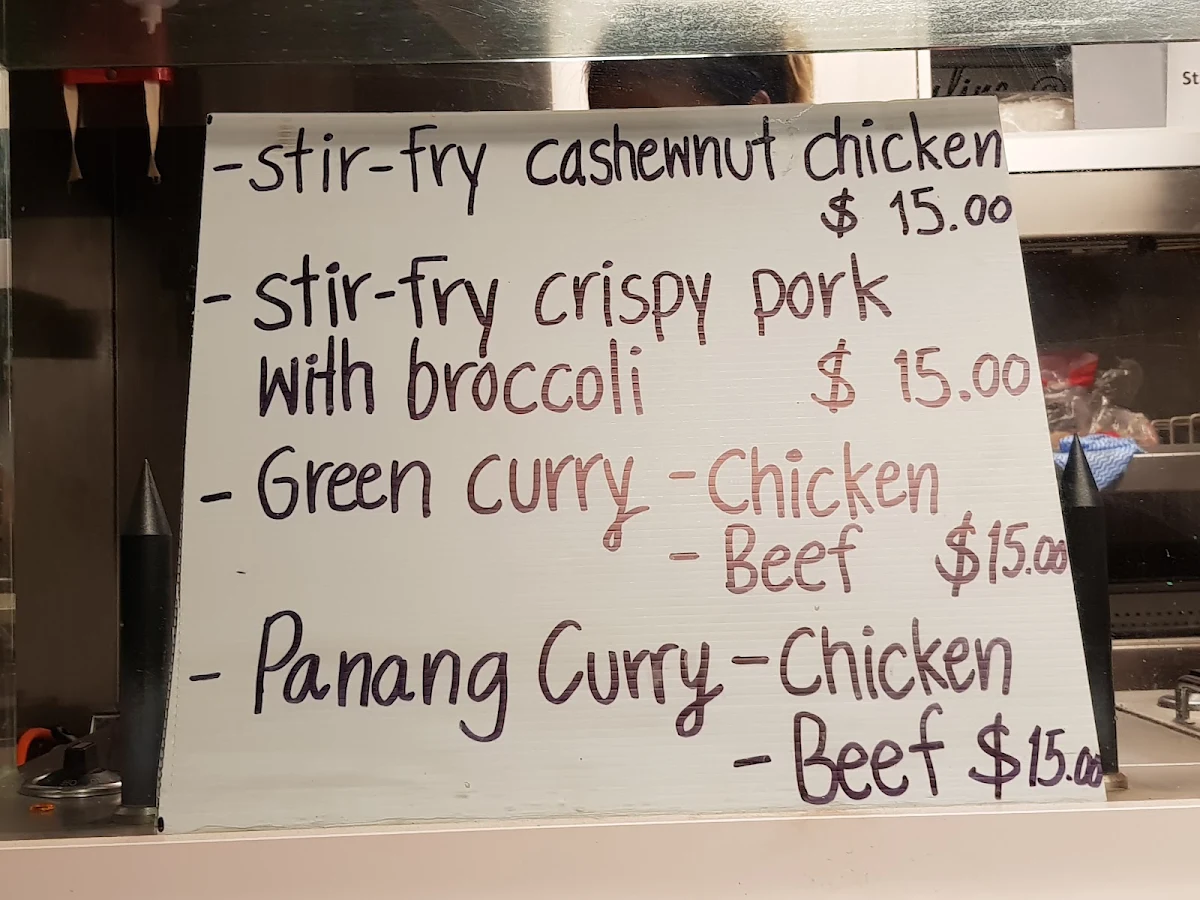 -stir-fry cashewnut chicken
$ 15.00
- stir-fry crispy pork
with broccoli $ 15.00
- Green curry -Chicken
- Beef $15.00
- Panang Curry -Chicken
- Beef $15.00
St